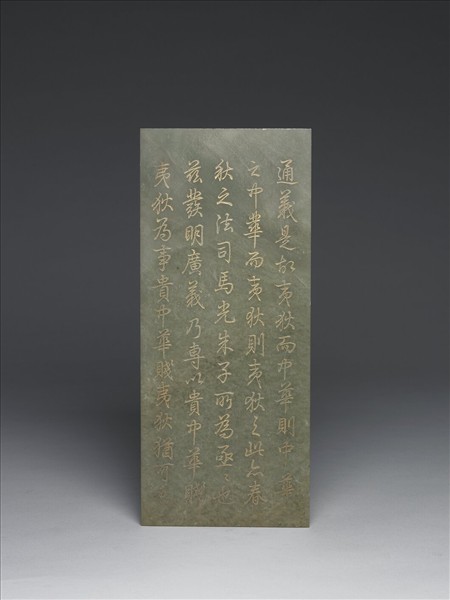 通義是故夷狄而中華則中華
之中華而夷狄則夷狄之此亦春
秋之法司馬光朱子所為亟〻也
茲發明廣義乃專以貴中華賤
夷狄為事貴中華賤夷狄猶可